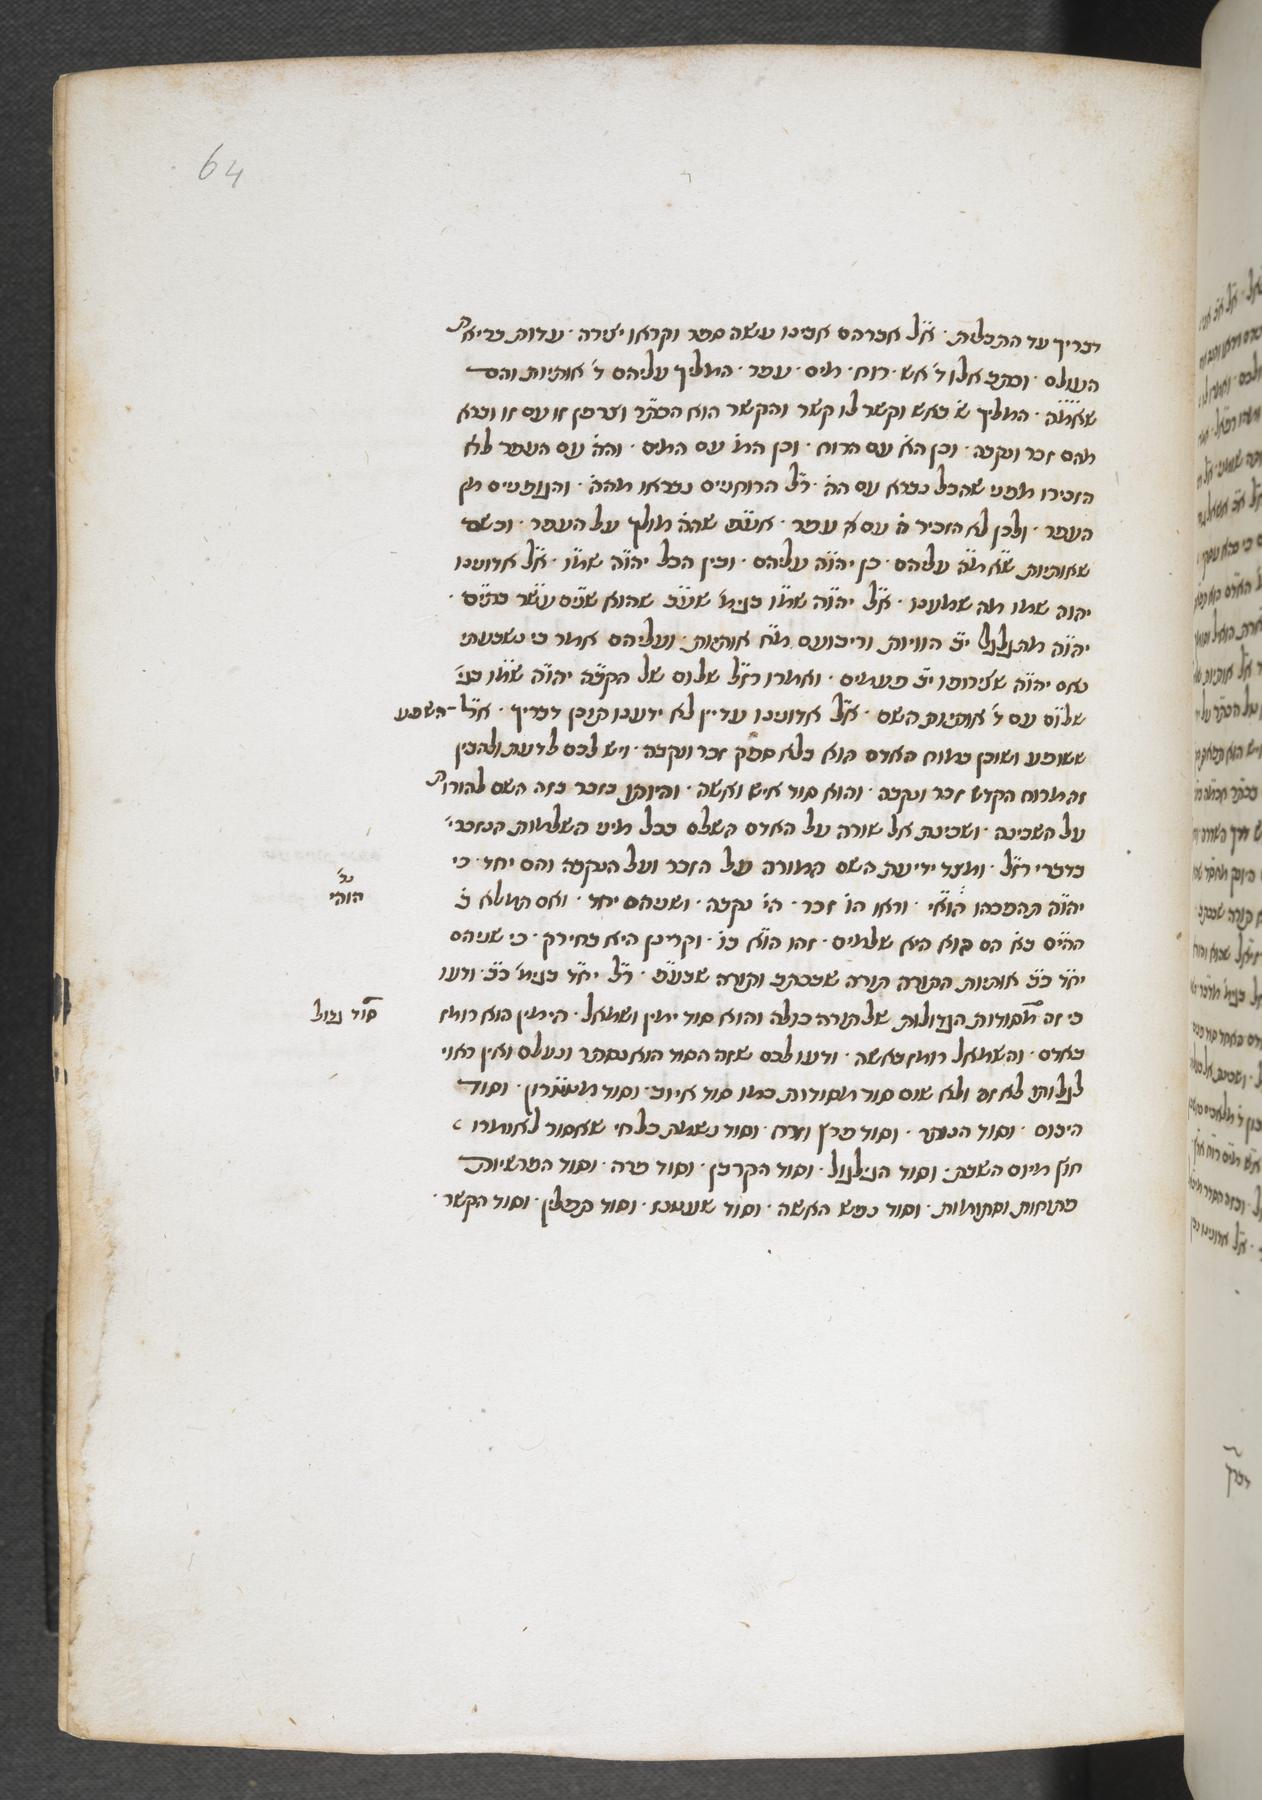 64
דבריך עד התכלית · א״ל אברהם אבינו עשה ספר וקראו יצירה · עדות בריאת
העולם · וכתב אלו ד׳ אש · רוח · מים · עפר · המליך עליהם ד׳ אותיות והם
שאמ״ה · המליך ש׳ באש וקשר לו קשר והקשר הוא הכתר וצרפן זו עם זו וברא
מהם זכר ונקבה · וכן הא׳ עם הרוח · וכן המ׳ עם המים · והה׳ עם העפר לא
הזכירו מפני שהכל נברא עם הה׳ · ר״ל הרוחניים נבראו מהה׳ · והגופניים מן
העפר · ולכן לא הזכיר ה׳ עם עפר · אעפ״י שהה׳ מולך על העפר · וכשם
שאותיות שאמ״ה עליהם · כן יהו״ה עליהם · ובין הכל יהו״ה שמו · א״ל אדונינו
יהוה שמו מה שמענו · א״ל יהו״ה שמו בגימ׳ שע״ב שהוא שנים עשר בתים ·
יהו״ה מתגלגל י״ב הוויות וריבועם מ״ח אותיות · ועליהם אמר כי נשבעתי
נאם יהו״ה שצירופו י״ב פעמים · ואמרו רז״ל שלום של הקב״ה יהו״ה שמו בגי׳
שלום עם ד׳ אותיות השם · א״ל אדונינו עדיין לא ידענו תוכן דבריך · א״ל השפע
ששופע ושוכן במוח האדם הוא בלא ספק זכר ונקבה · ויש לכם לדעת ולהבין
זה מרוח הקדש זכר ונקבה · והוא סוד איש ואשה · והיותו נזכר בזה השם להורות
על השכינה · ושכינת אל שורה על האדם השלם בכל מיני השלמות הנזכרי׳
בדברי רז״ל · ומצד ידיעת השם המורה על הזכר ועל הנקבה והם יחד · כי
יהו״ה תהפכהו הוא״י · וראו הו׳ זכר · הי׳ נקבה · ושניהם יחד · ואם תמלא ב׳
ההי״ם בא׳ הם הוא היא שלמים · זהו הו״א בו׳ · וקריין היא בחירק · כי שניהם
יחד כ״ב אותיות התורה תורה שבכתב ותורה שבע״פ · ר״ל יח״ד בגימ׳ כ״ב · ודעו
כי זה מסודות הגדולות של תורה כולה והוא סוד ימין ושמאל · הימין הוא רומז
באדם · והשמאל רומז באשה · ודעו לכם שזה הסוד הוא נסתר ונעלם ואין ראוי
לגלותו לא זה ולא שום סוד מסודות כמו סוד איוב · וסוד מטטרון · וסוד
היבום · וסוד הנותר · וסוד פרץ וזרח · וסוד נשמת כל חי שאסור לאומרו
חוץ מיום השבת · וסוד הגילגול · וסוד הקרבן · וסוד פרה · וסוד הפרשיות
פתוחות וסתומות · וסוד נפש האשה · וסוד שעטנז · וסוד תפילין · וסוד הקשר ·
נ״א
הוהי
סוד גדול